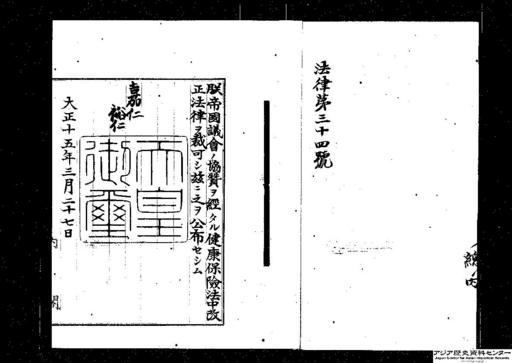 法律第三十四號
朕帝國議會ノ協贊ヲ經タル健康保險法中改
正法律ヲ裁可シ茲ニ之ヲ公布セシム
嘉仁
裕仁
天皇
御璽
大正十五年三月二十七日
内閣
アジア歴史資料センター
Japan Center for Asian Historical Records